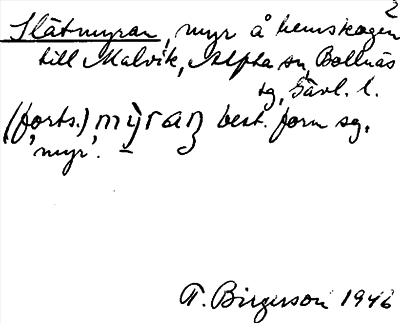 2
Slåtmyran, myr å hemskogen
till Malvik, Alfta sn, Bollnäs
tg, Gävl. l.
(forts.) mỳraṇ best. form sg.
'myr'.
T. Birgerson 1946